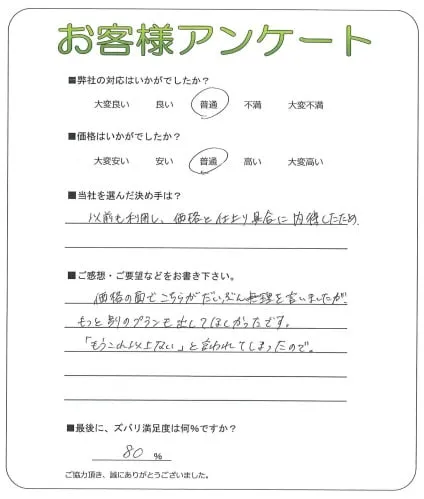 お客様アンケート
■弊社の対応はいかがでしたか?
大変良い 良い 普通 不満 大変不満
■価格はいかがでしたか?
大変安い 安い 普通 高い 大変高い
■当社を選んだ決め手は?
以前も利用し、価格と仕上り具合に納得したため、
■ご感想・ご要望などをお書き下さい。
価格の面でこちらがだいぶん無理を言いましたが
もっと別のプランも出してほしかったです。
「もうこれ以上ない」と言われてしまったので。
■最後に、ズバリ満足度は何%ですか?
80 %
ご協力頂き、誠にありがとうございました。